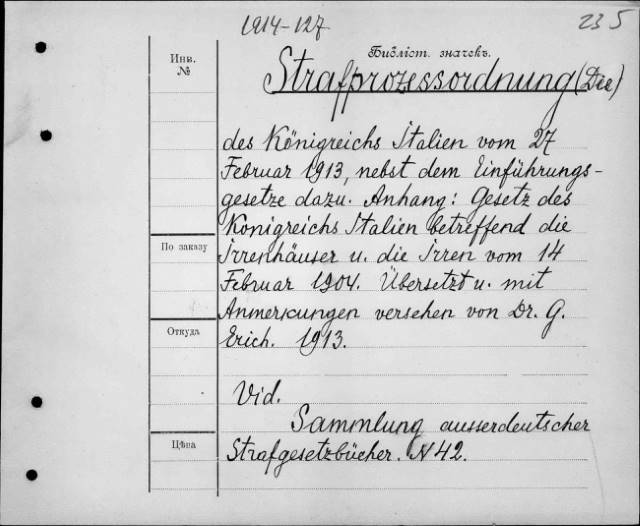 1914-127
235
Библіст. значекъ.
Инв. №
Strafprozessordnung (Die)
des Königreichs Italien vom 27
Februar 1913, nebst dem Einführungs-
gesetze dazu. Anhang: Gesetz des
Konigreichs Italien betreffend die
Irrenhäuser u. die Irren vom 14
Februar 1904. Übersetzt u. mit
Anmerkungen versehen von Dr. G.
Erich. 1913.
По заказу
Откуда
Цѣна
Vid.
Sammlung ausserdeutscher
Strafgesetzbücher. N 42.